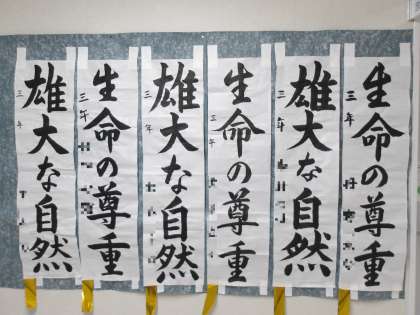 生命の尊重
三年
雄大な自然
三年
生命の尊重
三年
雄大な自然
三年
生命の尊重
三年
雄大な自然
三年